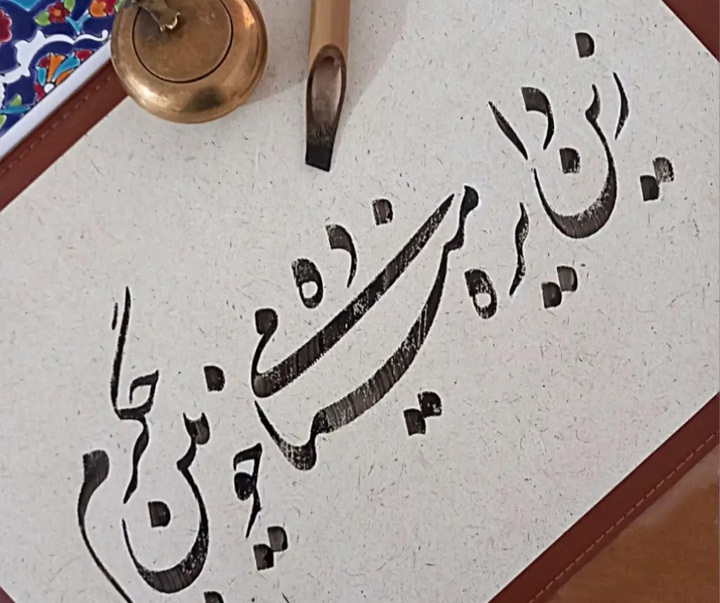 زین دایره مینا خونین جگرم می ده